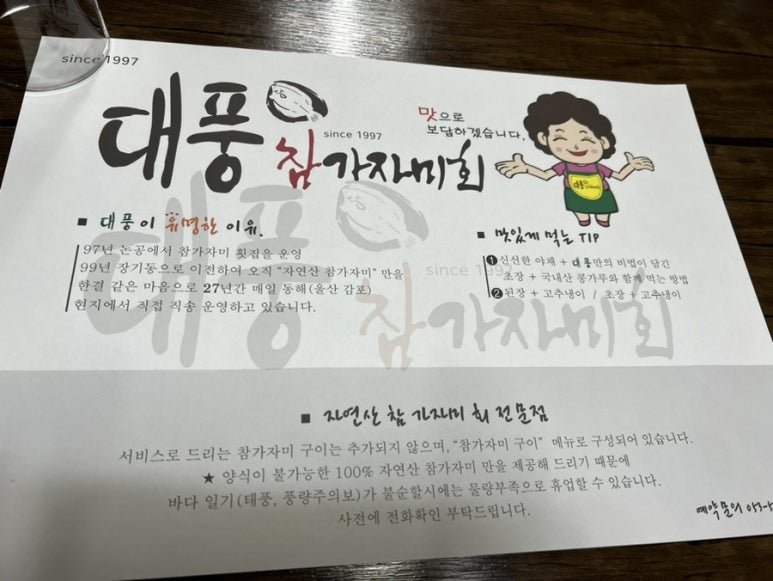 since 1997
대풍
참가자미회
since 1997
맛으로
보답하겠습니다.
대풍
■ 대풍이 유명한 이유.
97년 논공에서 참가자미 횟집을 운영
99년 장기동으로 이전하여 오직 "자연산 참가자미" 만을
한결 같은 마음으로 27년간 매일 동해(울산 감포)
현지에서 직접 직송 운영하고 있습니다.
■ 맛있게 먹는 TIP
❶ 신선한 야채 + 대풍만의 비법이 담긴
초장 + 국내산 콩가루와 함께 먹는 방법
❷ 된장 + 고추냉이 / 초장 + 고추냉이
대풍
since 1997
참가자미회
■ 자연산 참 가자미 회 전문점
서비스로 드리는 참가자미 구이는 추가되지 않으며, "참가자미 구이" 메뉴로 구성되어 있습니다.
★ 양식이 불가능한 100% 자연산 참가자미 만을 제공해 드리기 때문에
바다 일기(태풍, 풍량주의보)가 불순할시에는 물량부족으로 휴업할 수 있습니다.
사전에 전화확인 부탁드립니다.
예약문의